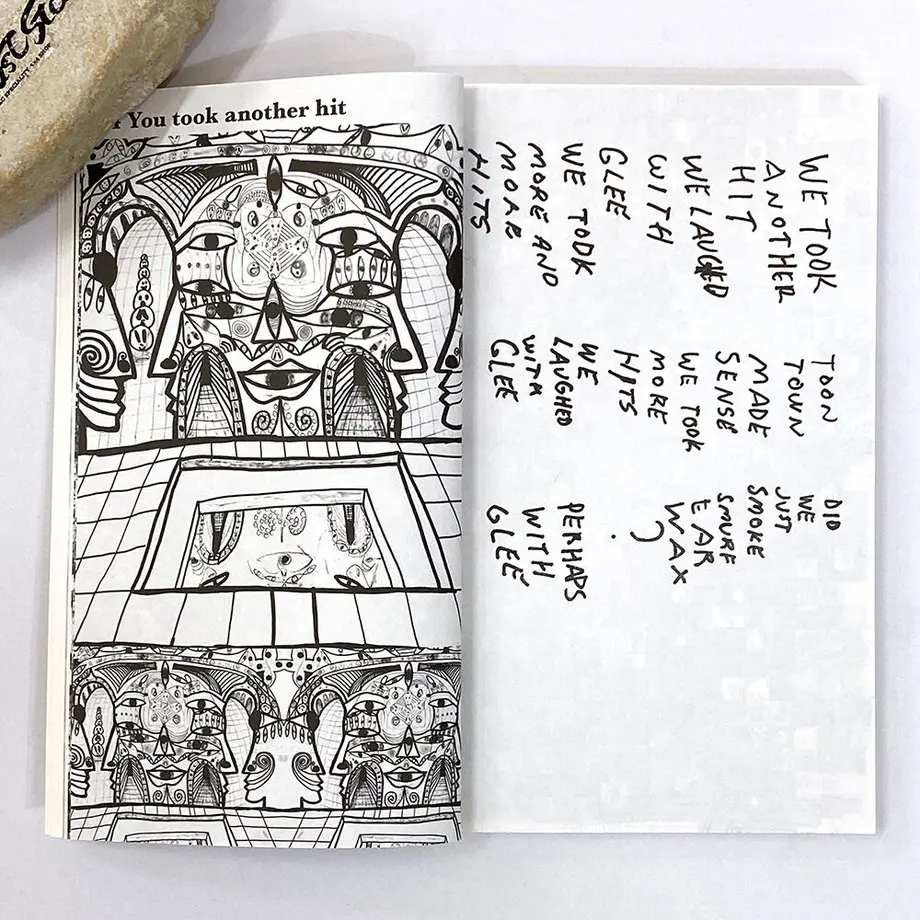 You took another hit
WE TOOK
ANOTHER
HIT
WE LAUGHED
WITH
GLEE
WE TOOK
MORE AND
MOAR
HITS
TOON
TOWN
MADE
SENSE
WE TOOK
MORE
HITS
WE
LAUGHED
WITH
GLEE
DID
WE
JUST
SMOKE
SMURF
EAR
WAX
?
PERHAPS
WITH
GLEE